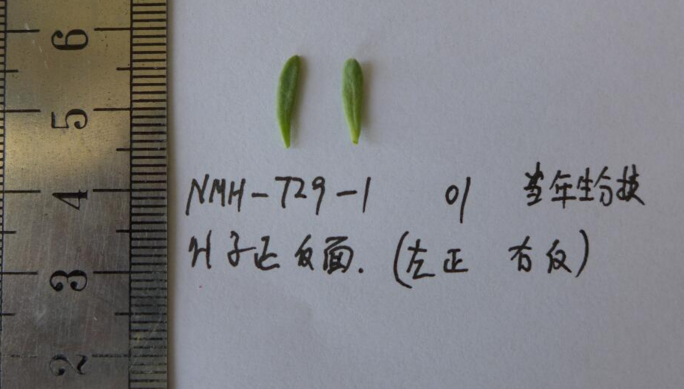 6
5
4
3
2
NMH-729-1 01 当年生分枝
叶子正反面. (左正 右反)